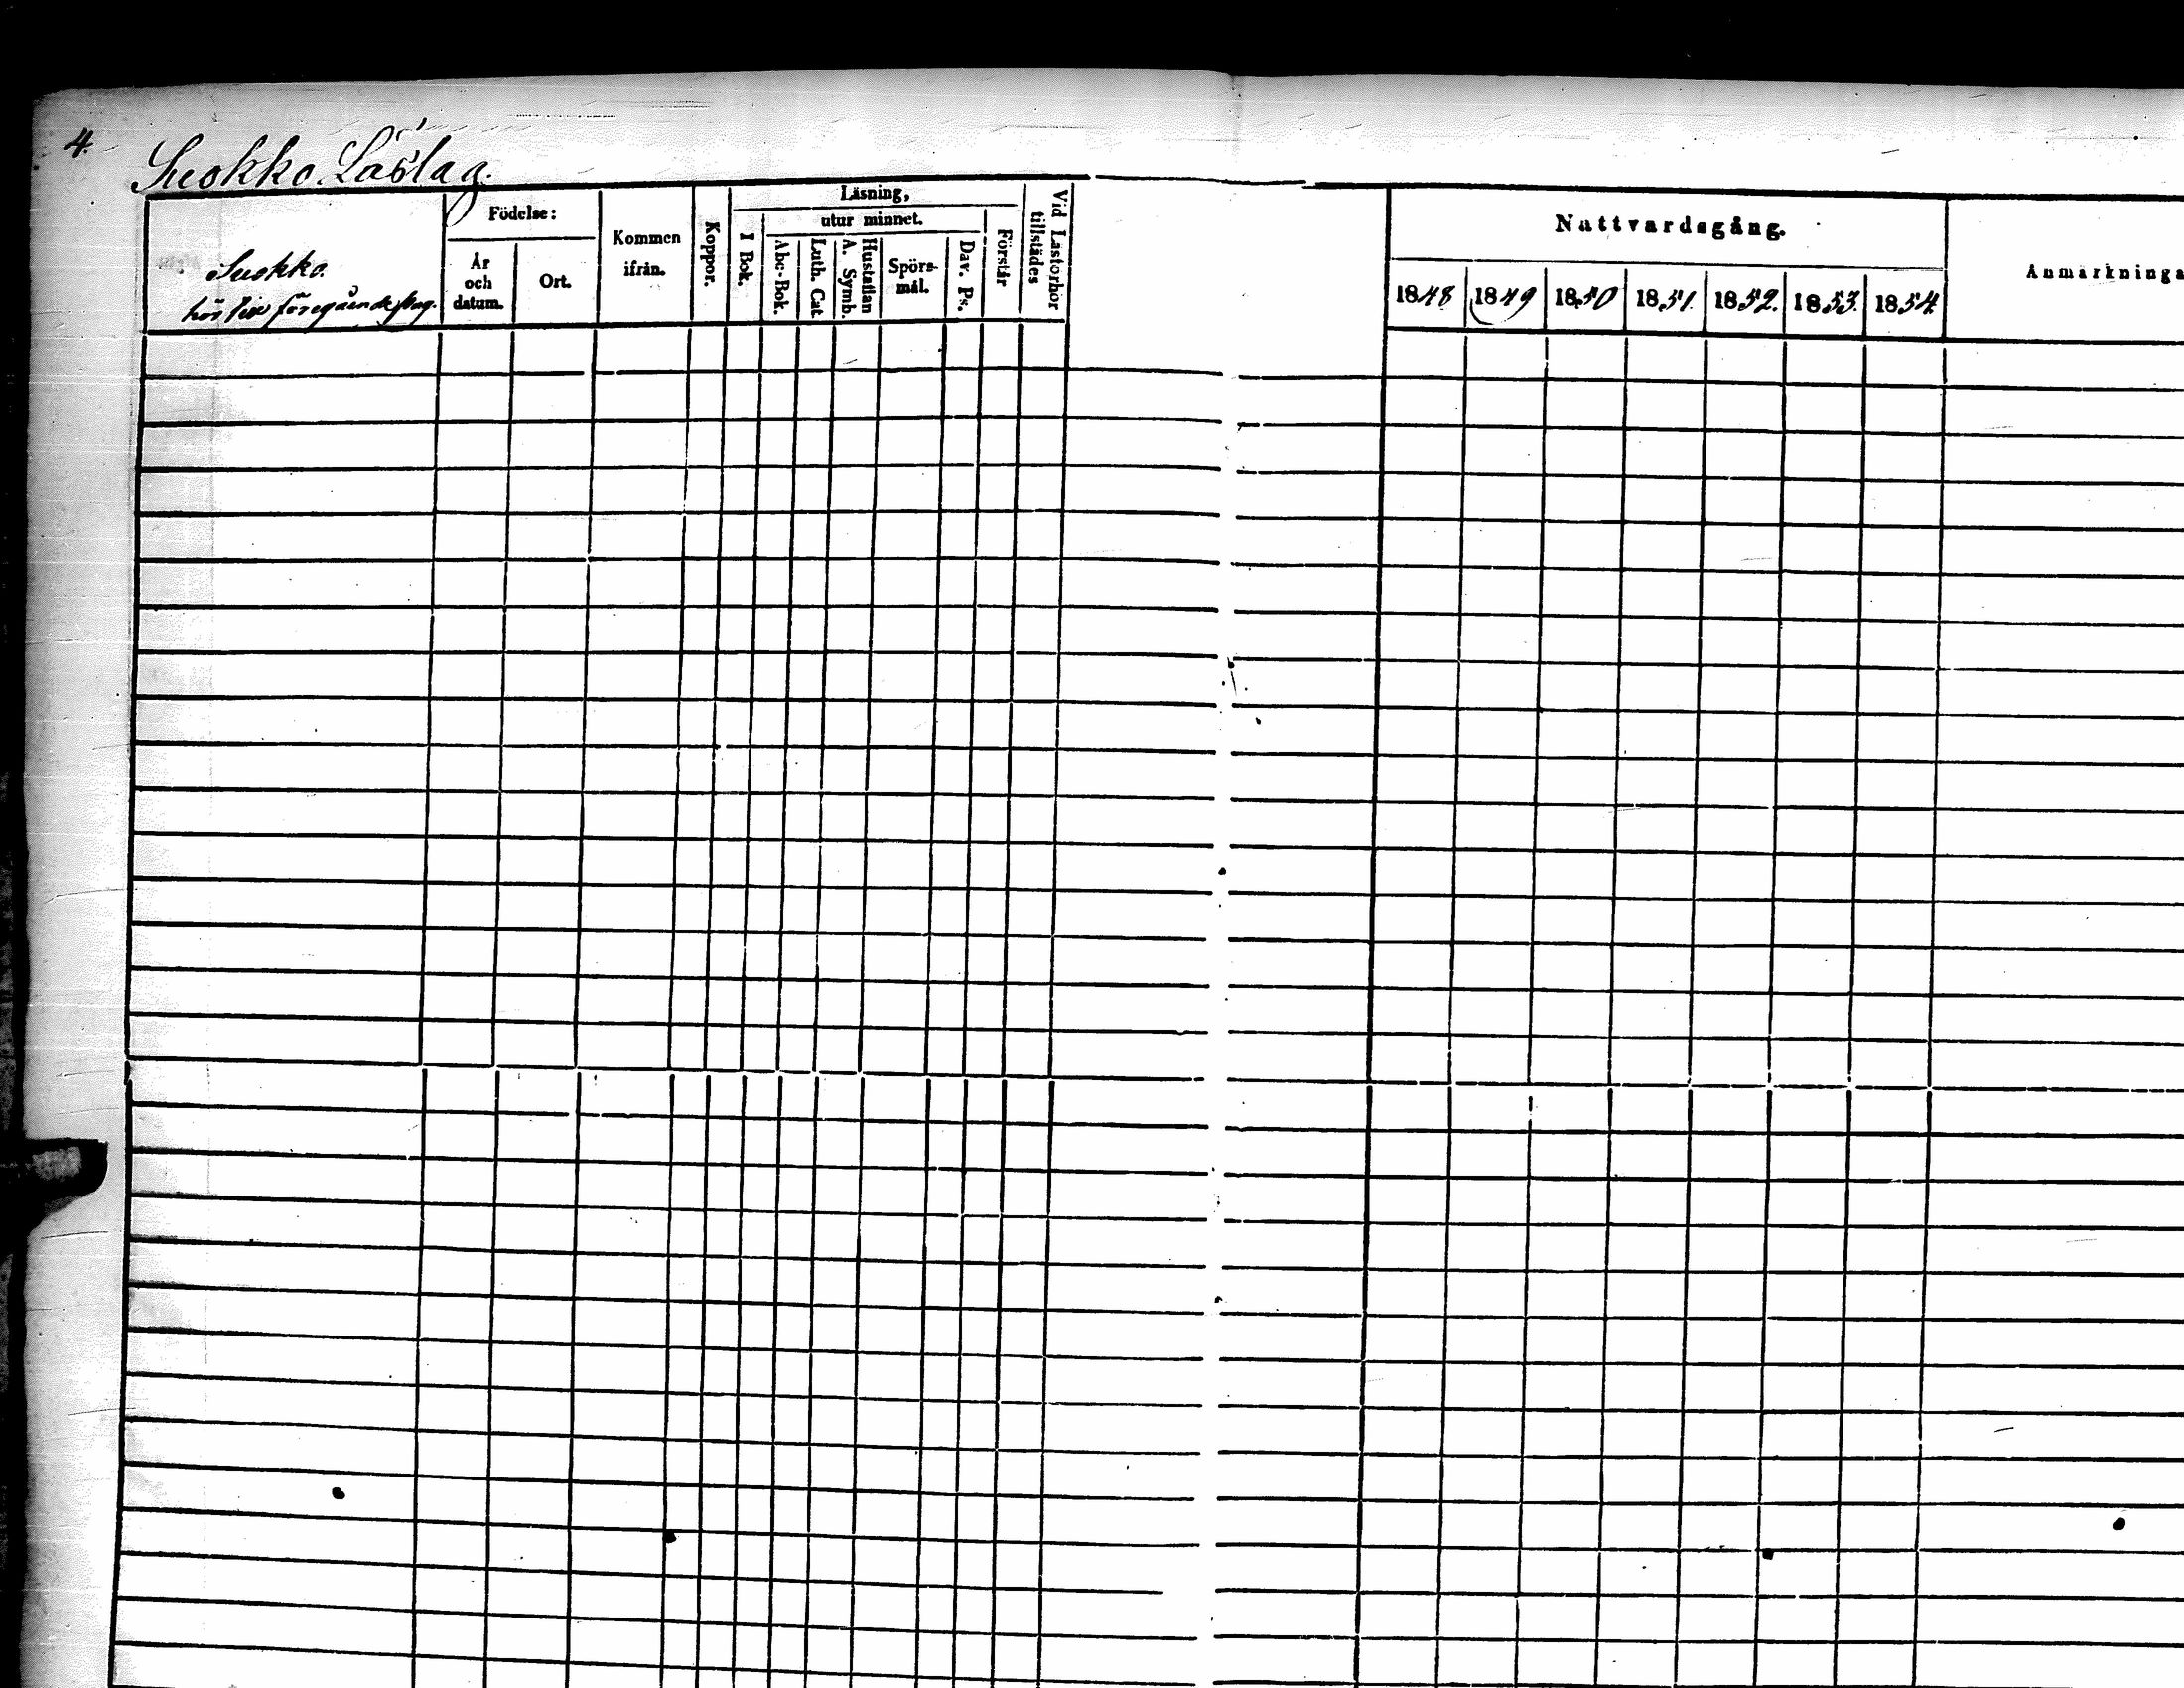 4.
Suokko Läslag.
Suokko.
hör till föregående pag.
Födelse:
År
och
datum.
Ort.
Kommen
ifrån.
Koppor.
Läsning,
I Bok.
utur minnet.
Abc-Bok.
Luth. Cat
Hustaflan
A. Symb.
Spörs-
mål.
Dav. Ps.
Förstår
Vid Läsförhör
tillstädes
Nattvardsgång.
1848 1849 1850 1851. 1852. 1853. 1854.
Anmärkninga